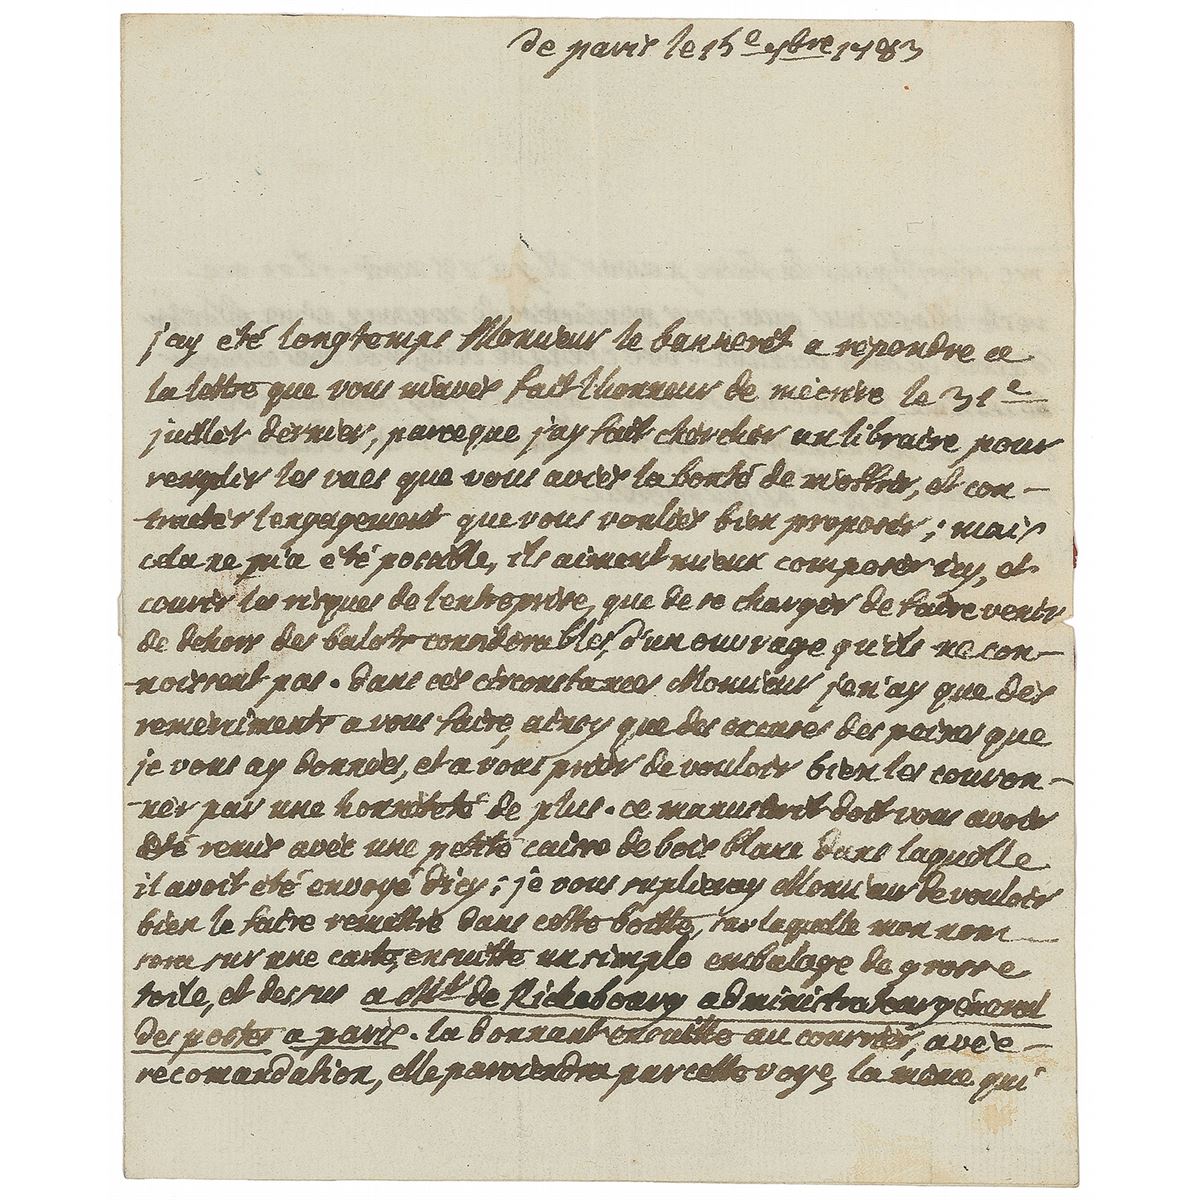 de paris le 15e 7bre 1783
j'ay été longtemps Monsieur le banneret a repondre a
la lettre que vous m'avés fait l'honneur de mécrire le 31e
juillet dernier, parceque j'ay fait chercher un libraire pour
remplir les vues que vous aviés la bonté de m'offrir, et con-
tracter l'engagement que vous vouliés bien proposer; mais
cela ne m'a été possible, ils aiment mieux composer icy, et
courir les risques de l'entreprise, que de se charger de faire venir
de dehors des balots considerables, d'un ouvrage qu'ils ne con-
noissent pas. dans ces circonstances Monsieur je n'ay que des
remerciments a vous faire, ainsy que des excuses des peines que
je vous ay données, et a vous prier de vouloir bien les couron-
ner par une honnêteté de plus. ce manuscrit doit vous avoir
été remis avec une petite caisse de bois blanc dans laquelle
il avoit été envoyé d'icy; je vous suplieray Monsieur de vouloir
bien le faire remettre dans cette boitte, sur laquelle mon nom
sera sur une carte, ensuitte un simple embalage de grosse
toile, et dessus a Mr de Richebourg administrateur general
des postes a paris. la donnant ensuitte au courrier, avec
recomandation, elle parviendra par cette voye, la même qui